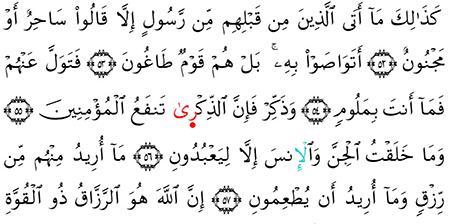 كَذَٰلِكَ مَآ أَتَى ٱلَّذِينَ مِن قَبۡلِهِم مِّن رَّسُولٍ إِلَّا قَالُوا۟ سَاحِرٌ أَوۡ
مَجۡنُونٌ ۝٥٢ أَتَوَاصَوۡا۟ بِهِۦۚ بَلۡ هُمۡ قَوۡمٞ طَاغُونَ ۝٥٣ فَتَوَلَّ عَنۡهُمۡ
فَمَآ أَنتَ بِمَلُومٖ ۝٥٤ وَذَكِّرۡ فَإِنَّ ٱلذِّكۡرَىٰ تَنفَعُ ٱلۡمُؤۡمِنِينَ ۝٥٥
وَمَا خَلَقۡتُ ٱلۡجِنَّ وَٱلۡإِنسَ إِلَّا لِيَعۡبُدُونِ ۝٥٦ مَآ أُرِيدُ مِنۡهُم مِّن
رِّزۡقٖ وَمَآ أُرِيدُ أَن يُطۡعِمُونِ ۝٥٧ إِنَّ ٱللَّهَ هُوَ ٱلرَّزَّاقُ ذُو ٱلۡقُوَّةِ